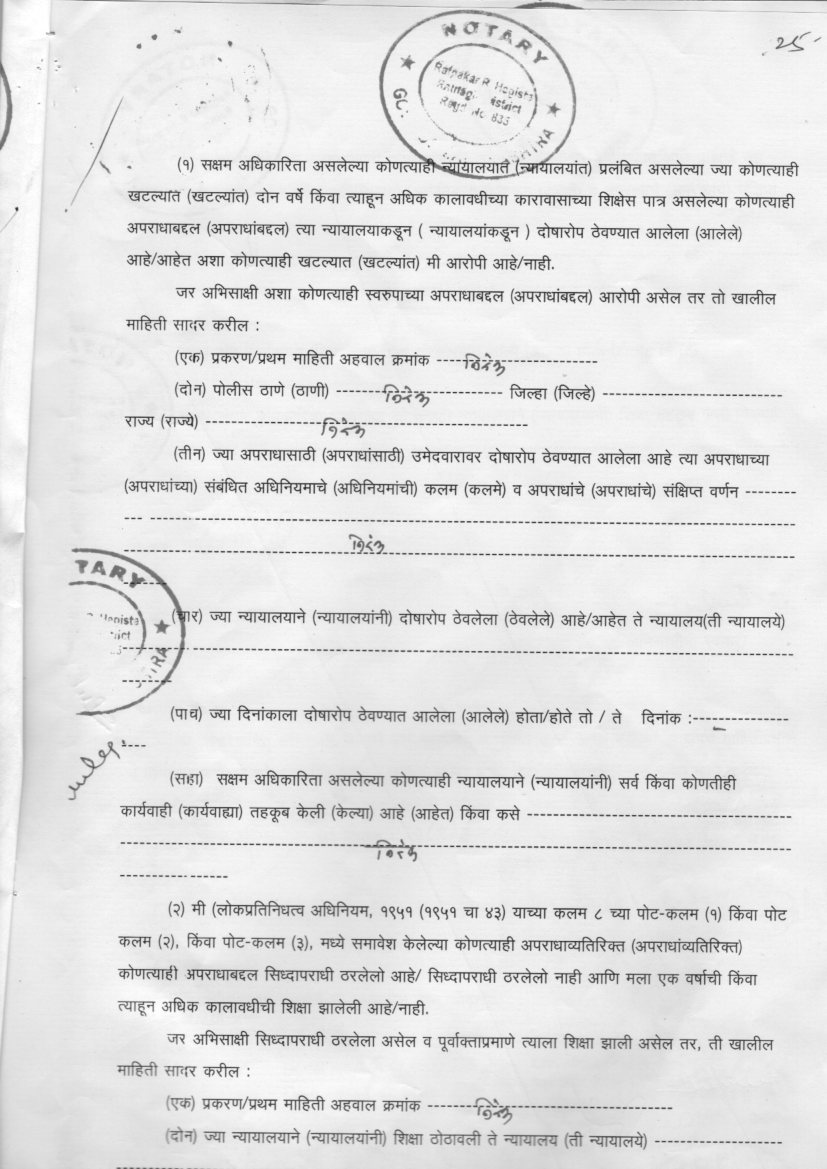 25
NOTARY
Ratnakar R. Hegiste
Ratnagiri District
Regd No. 833
(१) सक्षम अधिकारिता असलेल्या कोणत्याही न्यायालयात (न्यायालयांत) प्रलंबित असलेल्या ज्या कोणत्याही
खटल्यात (खटल्यांत) दोन वर्षे किंवा त्याहून अधिक कालावधीच्या कारावासाच्या शिक्षेस पात्र असलेल्या कोणत्याही
अपराधाबद्दल (अपराधांबद्दल) त्या न्यायालयाकडून ( न्यायालयांकडून ) दोषारोप ठेवण्यात आलेला (आलेले)
आहे/आहेत अशा कोणत्याही खटल्यात (खटल्यांत) मी आरोपी आहे/नाही.
जर अभिसाक्षी अशा कोणत्याही स्वरुपाच्या अपराधाबद्दल (अपराधांबद्दल) आरोपी असेल तर तो खालील
माहिती सादर करील :
(एक) प्रकरण/प्रथम माहिती अहवाल क्रमांक ----निरंक---------------
(दोन) पोलीस ठाणे (ठाणी) -------निरंक----------- जिल्हा (जिल्हे) ----------------------------
राज्य (राज्ये) ------------------निरंक-------------------------
(तीन) ज्या अपराधासाठी (अपराधांसाठी) उमेदवारावर दोषारोप ठेवण्यात आलेला आहे त्या अपराधाच्या
(अपराधांच्या) संबंधित अधिनियमाचे (अधिनियमांची) कलम (कलमे) व अपराधांचे (अपराधांचे) संक्षिप्त वर्णन --------
--- ----------------------------------------------------------------
-----------------------------------निरंक--------------------------------
TARY
(चार) ज्या न्यायालयाने (न्यायालयांनी) दोषारोप ठेवलेला (ठेवलेले) आहे/आहेत ते न्यायालय(ती न्यायालये)
----------------------------------------------------------------
--------
(पाच) ज्या दिनांकाला दोषारोप ठेवण्यात आलेला (आलेले) होता/होते तो / ते दिनांक :---------------
----
(सहा) सक्षम अधिकारिता असलेल्या कोणत्याही न्यायालयाने (न्यायालयांनी) सर्व किंवा कोणतीही
कार्यवाही (कार्यवाह्या) तहकूब केली (केल्या) आहे (आहेत) किंवा कसे ----------------------------------------
--------------------------------------निरंक----------------------------------------
-----------------
(२) मी (लोकप्रतिनिधत्व अधिनियम, १९५१ (१९५१ चा ४३) याच्या कलम ८ च्या पोट-कलम (१) किंवा पोट
कलम (२), किंवा पोट-कलम (३), मध्ये समावेश केलेल्या कोणत्याही अपराधाव्यतिरिक्त (अपराधांव्यतिरिक्त)
कोणत्याही अपराधाबद्दल सिध्दापराधी ठरलेलो आहे/ सिध्दापराधी ठरलेलो नाही आणि मला एक वर्षाची किंवा
त्याहून अधिक कालावधीची शिक्षा झालेली आहे/नाही.
जर अभिसाक्षी सिध्दापराधी ठरलेला असेल व पूर्वाक्ताप्रमाणे त्याला शिक्षा झाली असेल तर, ती खालील
माहिती सादर करील :
(एक) प्रकरण/प्रथम माहिती अहवाल क्रमांक --------निरंक-------------------------
(दोन) ज्या न्यायालयाने (न्यायालयांनी) शिक्षा ठोठावली ते न्यायालय (ती न्यायालये) --------------------